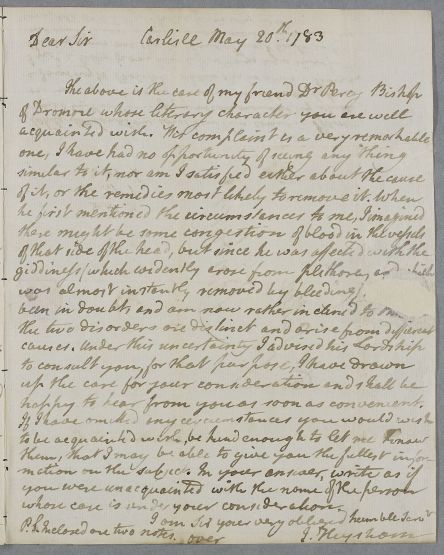 Dear Sir Carlisle May 20th 1783
The above is the case of my friend Dr Percy Bishop
of Dromore whose literary character you are well
acquainted with. His complaint is a very remarkable
one, I have had no opportunity of seeing any thing
similar to it, nor am I satisfied either about the cause
of it, or the remedies most likely to remove it. When
he first mentioned the circumstances to me, I imagined
there might be some congestion of blood in the vessels
of that side of the head, but since he was affected with the
giddiness (which evidently arose from plethora, and which
was almost instantly removed by bleeding)
been in doubts and am now rather inclined to
the two disorders are distinct and arise from different
causes. Under this uncertainty I advised his Lordship
to consult you, for that purpose, I have drawn
up the case for your consideration and shall be
happy to hear from you as soon as convenient.
If I have omitted any circumstances you would wish
to be acquainted with, be kind enough to let me know
them, that I may be able to give you the fullest infor
mation on the subject. In your answer, write as if
you were unacquainted with the name of the person
whose case is under your consideration.
I am Sir your very obliged humble Servt
P.S. Inclosed are two notes. over J. Heysham